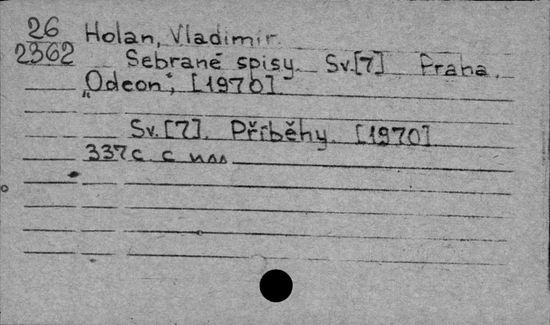 26
2362
Holan, Vladimír.
Sebrané spisy. Sv.[7] Praha,
„Odeon", [1970].
Sv.[7]. Příběhy. [1970]
337 с. с илл.